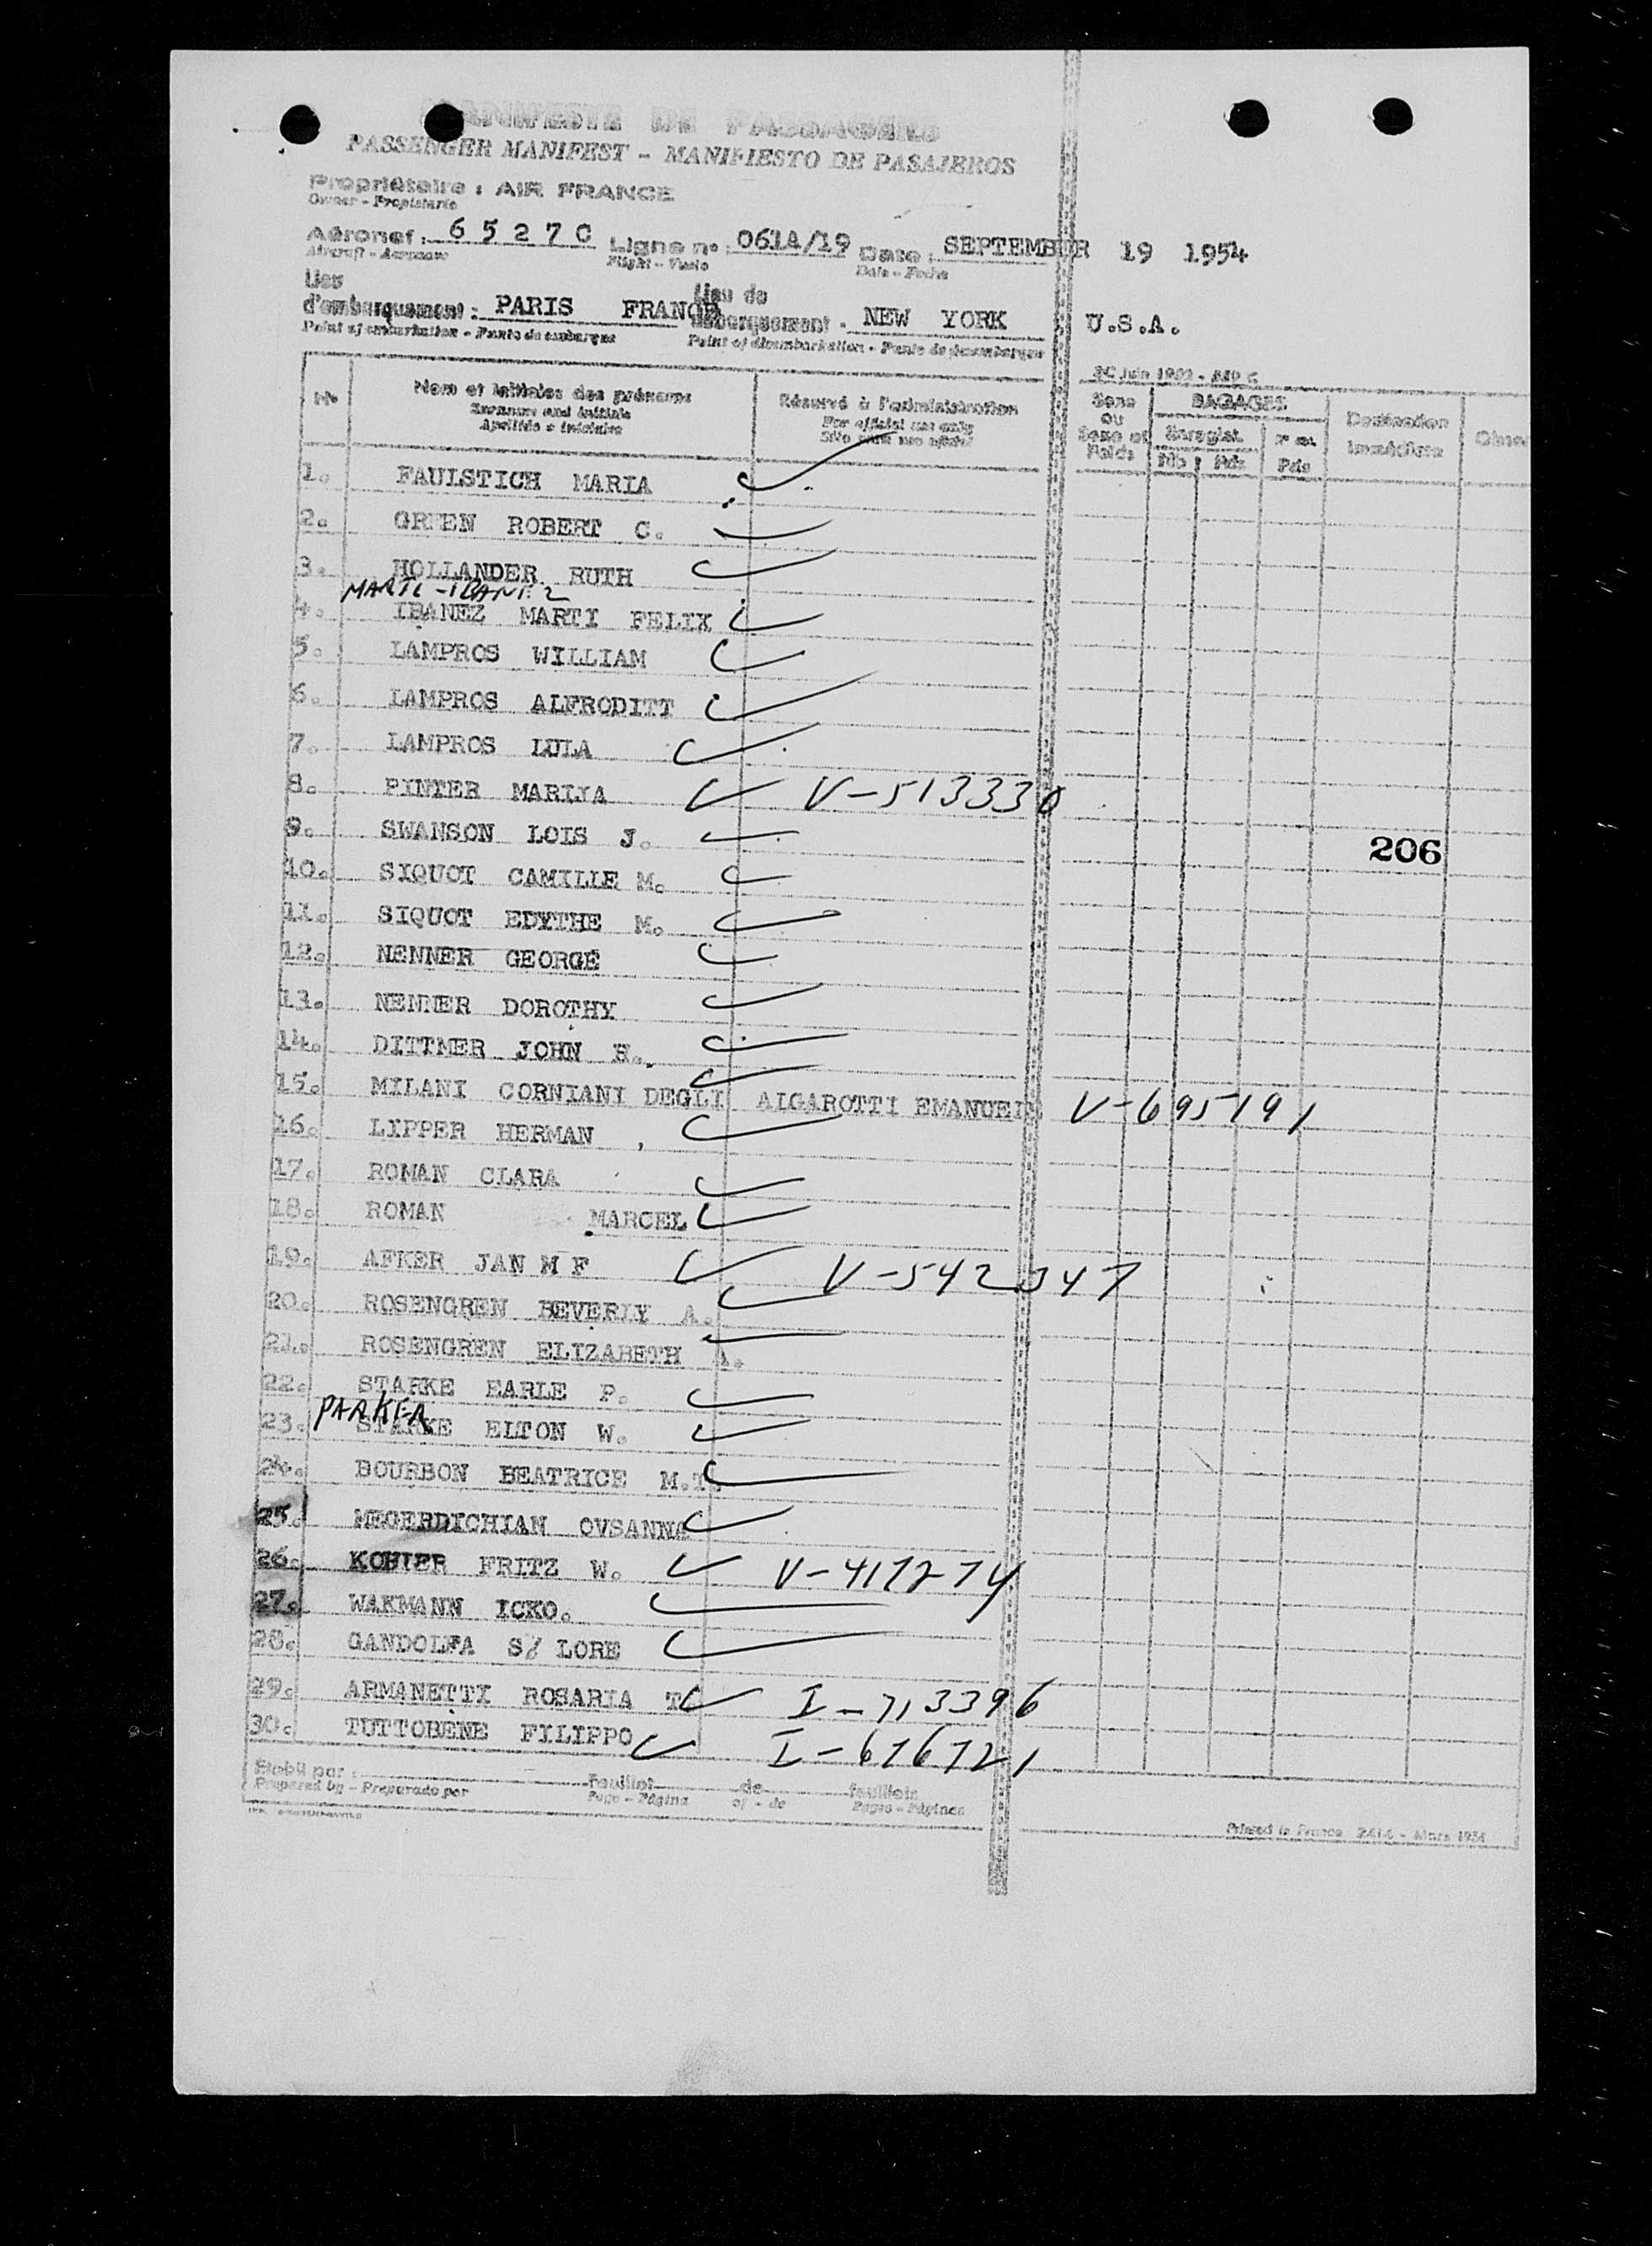 MANIFESTE DE PASSAGERS
PASSENGER MANIFEST - MANIFIESTO DE PASAJEROS
Propriétaire : AIR FRANCE
Owner - Propietario
Aéronef : 6 5 2 7 C Ligne n° : 061A/19 Date : SEPTEMBER 19 1954
Aircraft - Aeronave Flight - Vuelo Date - Fecha
Lieu d'embarquement : PARIS FRANCE Lieu de débarquement : NEW YORK U.S.A.
Point of embarkation - Punto de embarque Point of disembarkation - Punto de desembarque
N° Nom et initiales des prénoms Réservé à l'administration Sexe ou Sexe et Poids BAGAGES Destination immédiate
Surname and initials For official use only Enregist.
Apellido e iniciales Sitio para uso oficial Nb Pds Pds
1. FAULSTICH MARIA
2. GREEN ROBERT C.
3. HOLLANDER RUTH
MARTI-IBANEZ
4. IBANEZ MARTI FELIX
5. LAMPROS WILLIAM
6. LAMPROS ALFRODITT
7. LAMPROS LULA
8. PINTER MARIJA V-513330
9. SWANSON LOIS J. 206
10. SIQUOT CAMILLE M.
11. SIQUOT EDYTHE M.
12. NENNER GEORGE
13. NENNER DOROTHY
14. DITTMER JOHN H.
15. MILANI CORNIANI DEGLI ALGAROTTI EMANUEL V-695191
16. LIPPER HERMAN ,
17. ROMAN CLARA
18. ROMAN MARCEL
19. AFKER JAN M F V-542347
20. ROSENGREN BEVERLY A.
21. ROSENGREN ELIZABETH A.
22. STARKE EARLE P.
PARKER
23. STARKE ELTON W.
24. BOURBON BEATRICE M.T.
25. MEGERDICHIAN OVSANNA
26. KOHLER FRITZ W. V-417274
27. WAKMANN ICKO.
28. GANDOLFA S/ LORE
29. ARMANETTI ROSARIA T. I-713396
30. TUTTOBENE FILIPPO I-676721
Etabli par : Feuillet de feuillets
Prepared by - Preparado por Page - Página of - de Pages - Páginas
Printed in France 2414 - Mars 1954